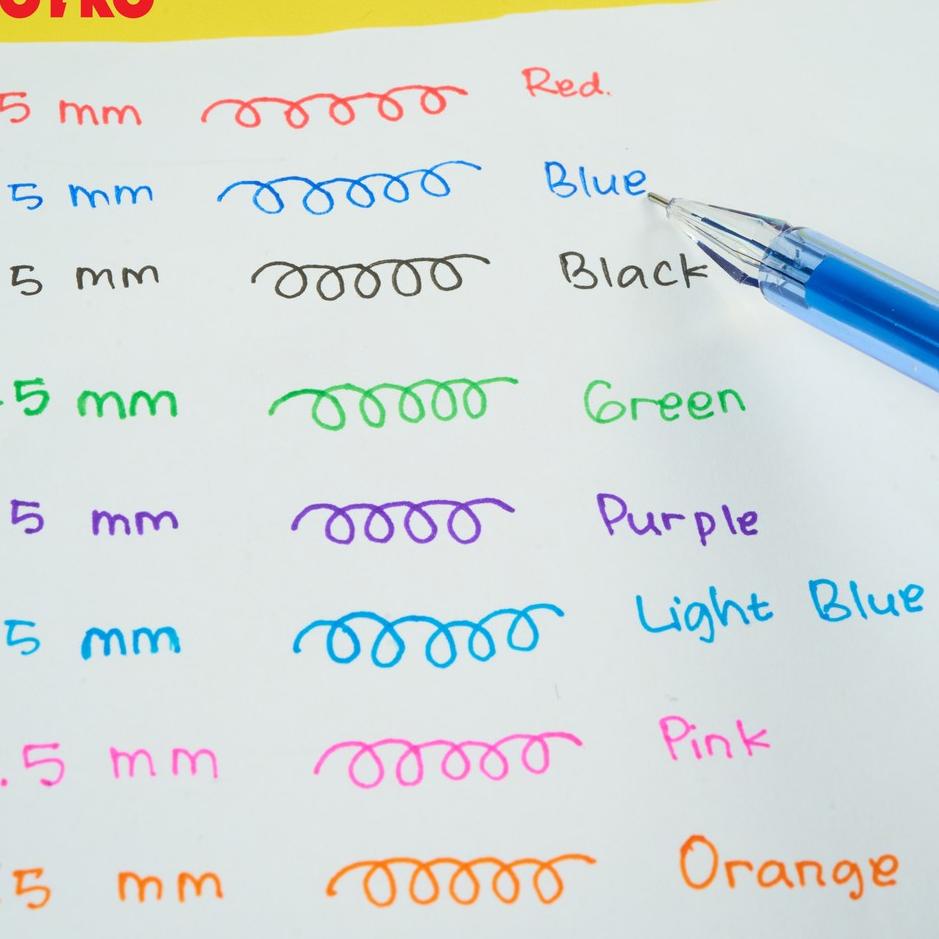 5 mm Red.
5 mm Blue
5 mm Black
5 mm Green
5 mm Purple
5 mm Light Blue
.5 mm Pink
5 mm Orange